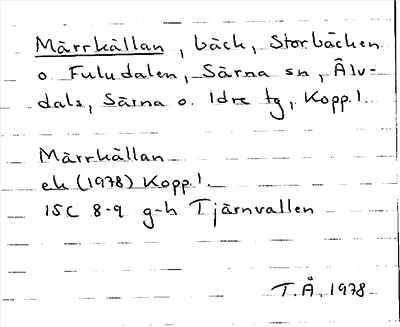 Märrkällan, bäck, Storbäcken
o. Fuludalen, Särna sn, Älv-
dals, Särna o. Idre tg, Kopp.l.
Märrkällan
ek (1978) Kopp.l.
15C 8-9 g-h Tjärnvallen
T.Å. 1978